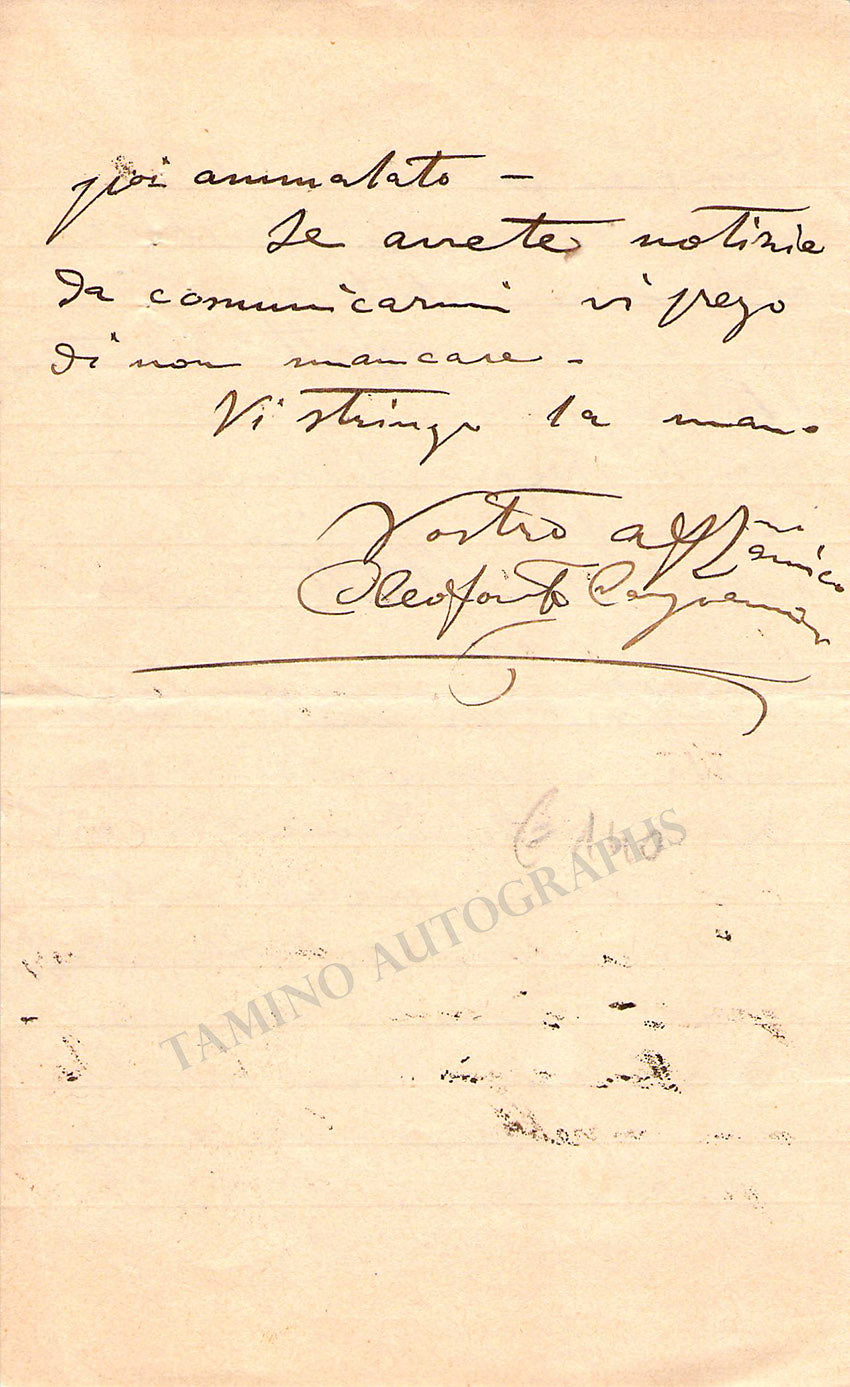 poi ammalato –
Se avrete notizie
da comunicarmi vi prego
di non mancare –
Vi stringo la mano
Vostro aff.mo amico
Cleofonte Campanini
TAMINO AUTOGRAPHS